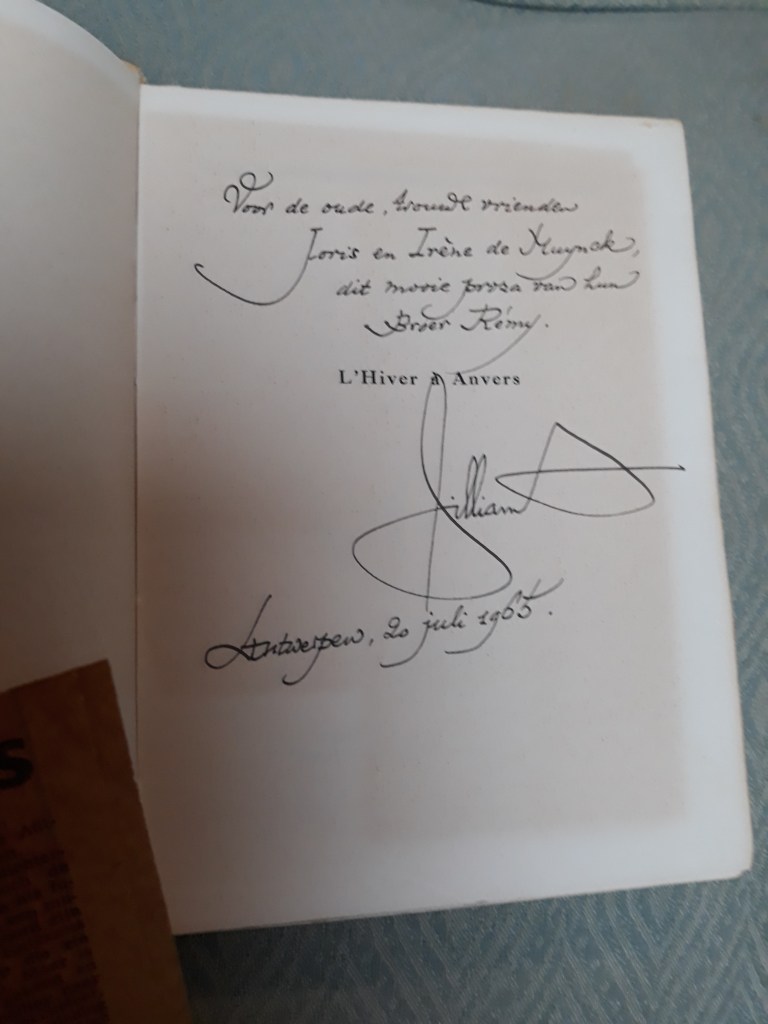 Voor de oude, trouwe vrienden
Joris en Irène de Muynck,
dit mooie proza van hun
Broer Rémy.
L'Hiver à Anvers
Antwerpen, 20 juli 1965.
S